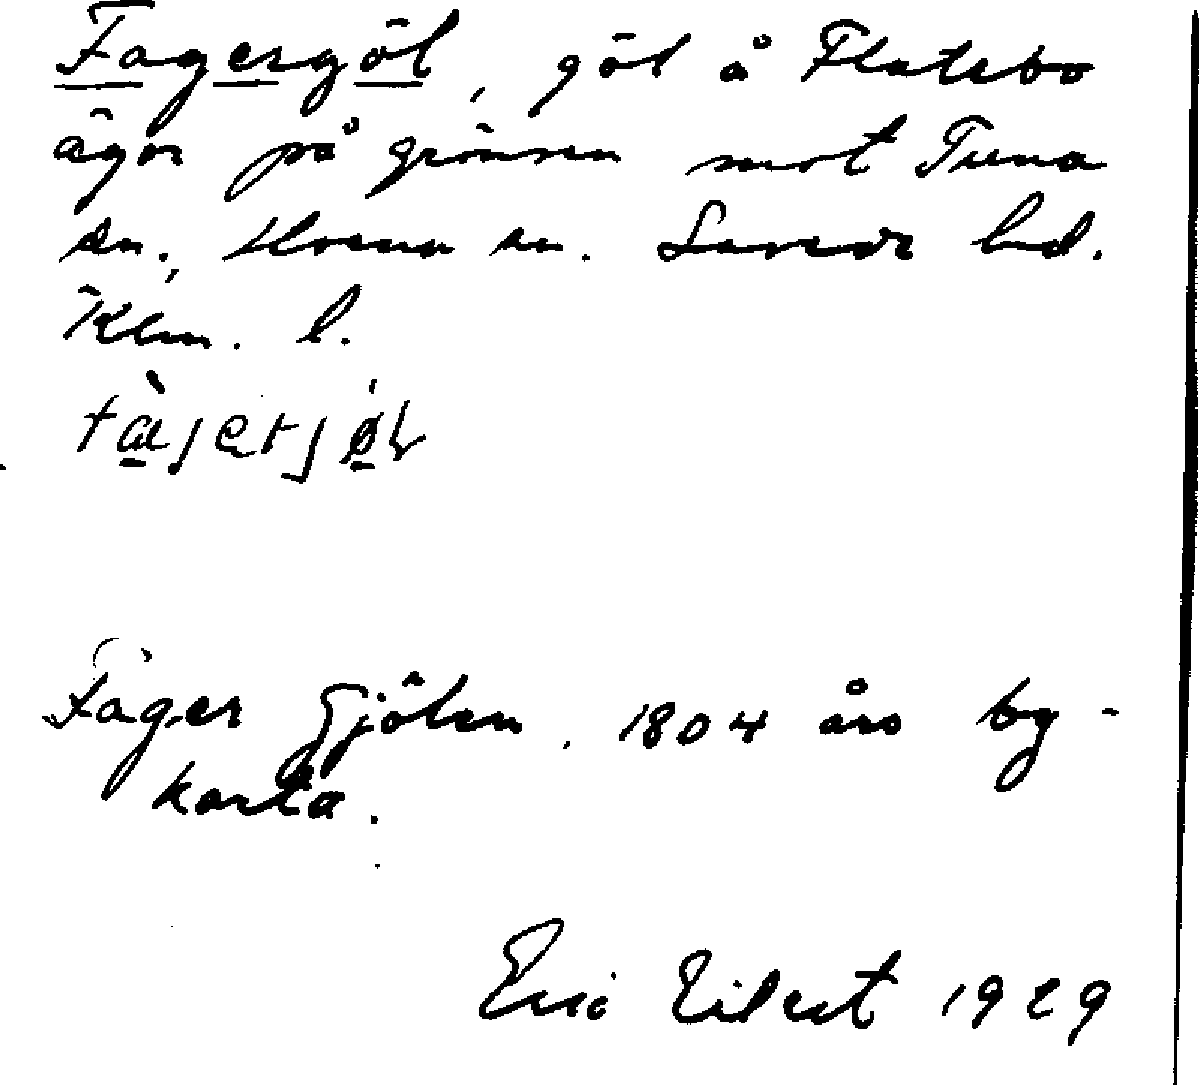 Fagergöl, göl å Flatebo
ägor på gränsen mot Tuna
sn., sn. Sevede hd.
Klm. l.
Fager Gjölen. 1804 års by-
karta.
Eric Eilert 1929